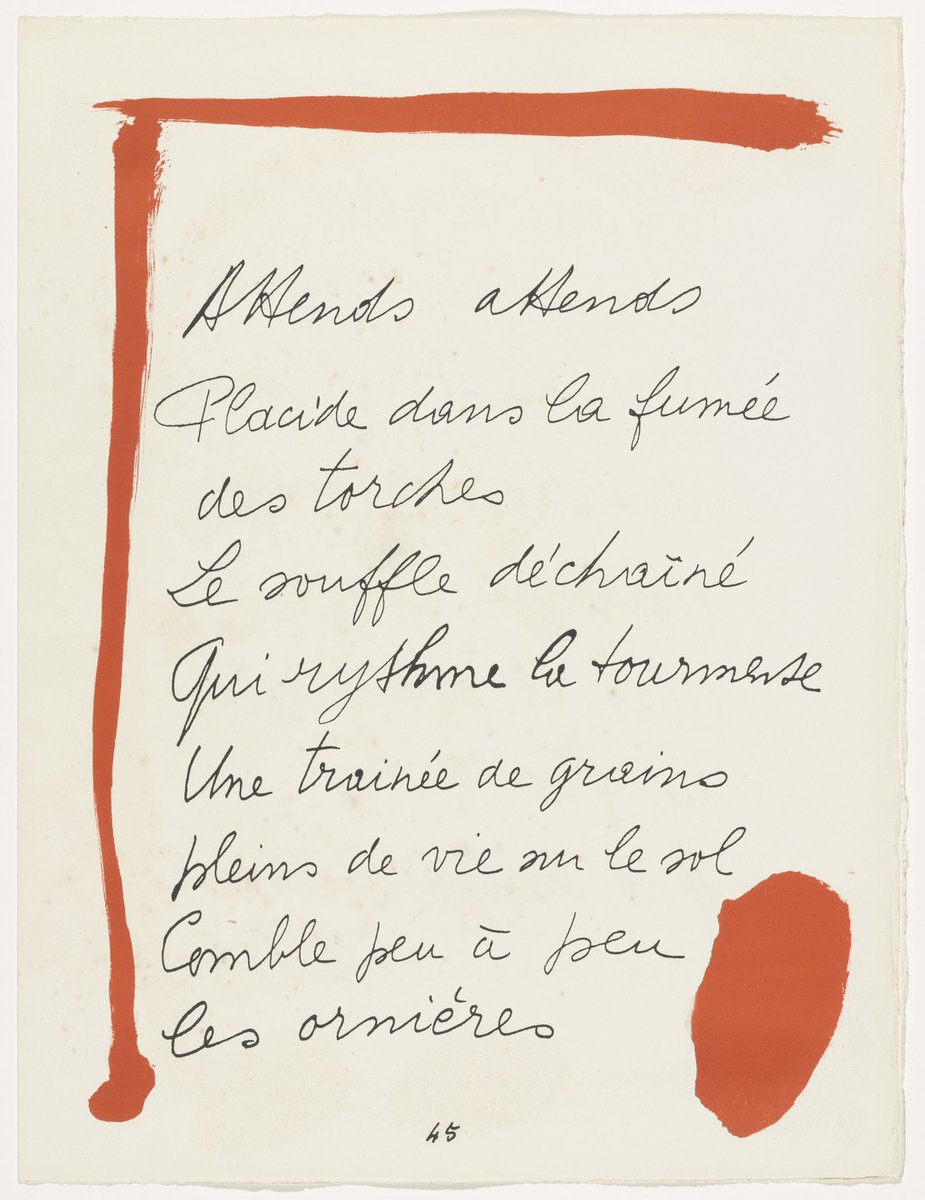 Attends attends
Placide dans la fumée
des torches
Le souffle déchaîné
Qui rythme la tourmente
Une trainée de grains
pleins de vie sur le sol
Comble peu à peu
les ornières
45